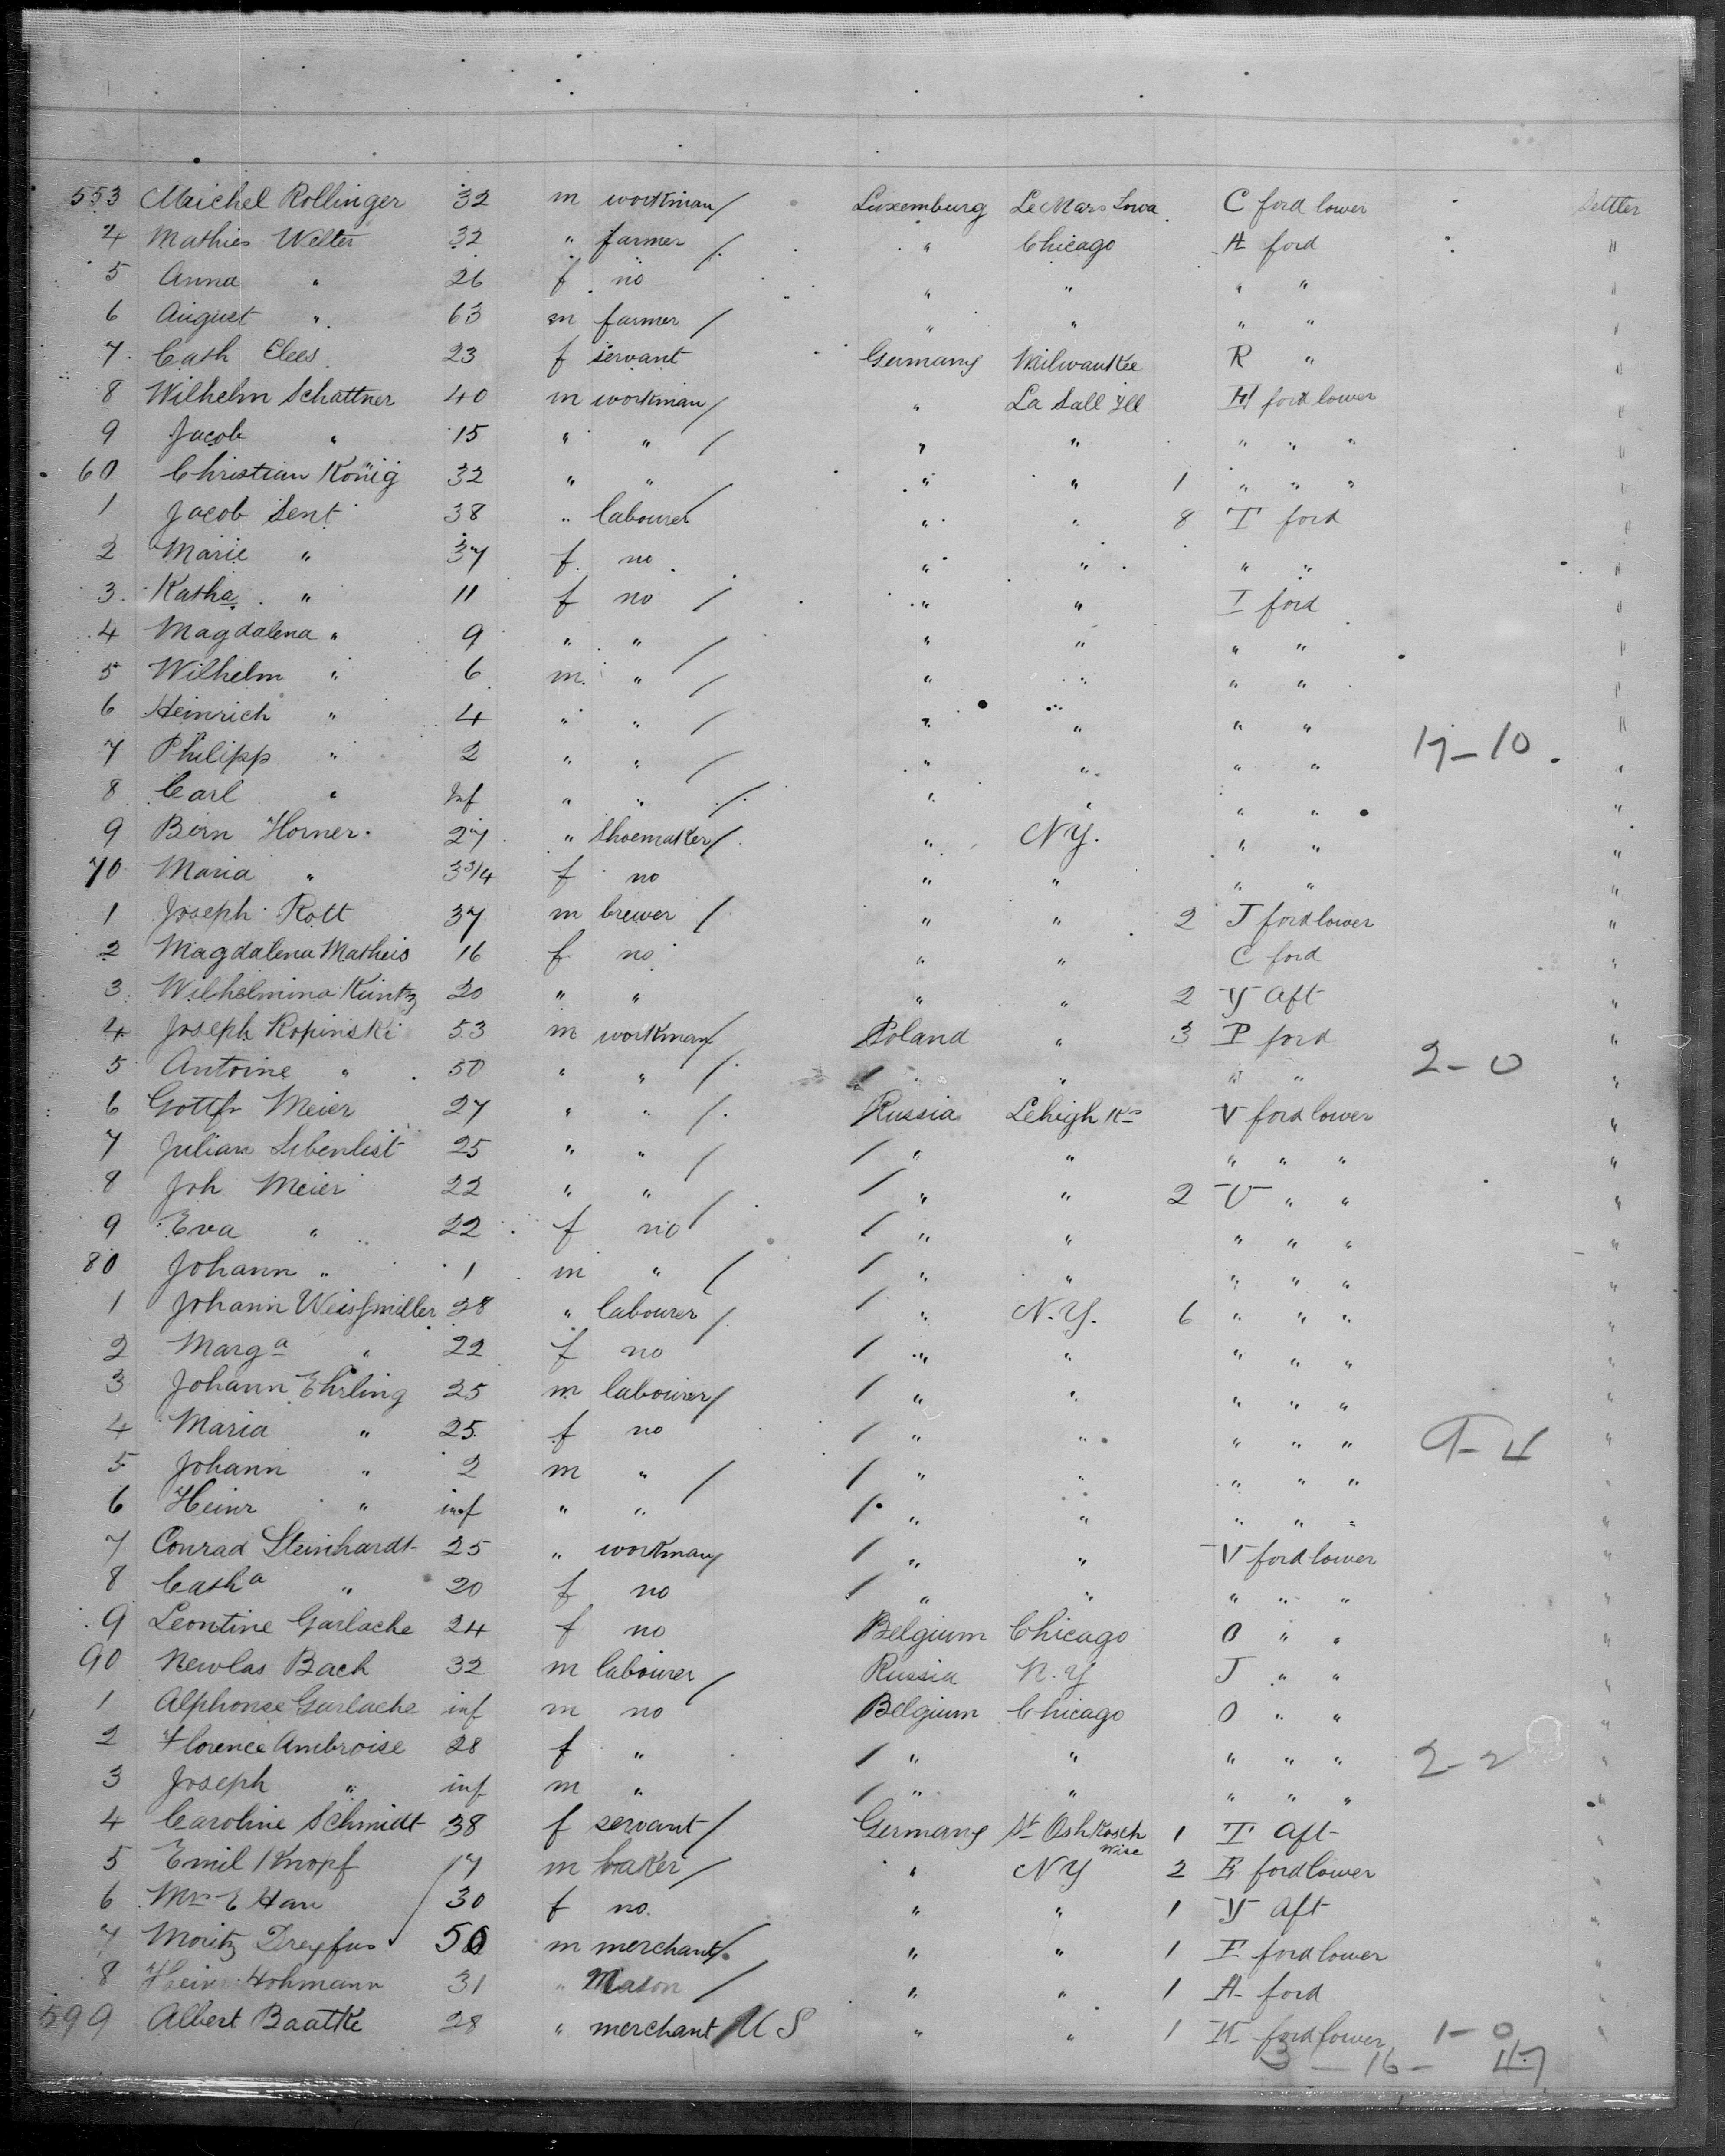 553 Maichel Rollinger 32 m workman / Luxemburg Le Mars Iowa C ford lower Settler
4 Mathies Welter 32 " farmer / " Chicago A ford "
5 Anna " 26 f no " " " " "
6 August " 63 m farmer / " " " " "
7 Cath Elees 23 f servant Germany Milwaukee R " "
8 Wilhelm Schattner 40 m workman / " La Sall Ill H ford lower "
9 Jacob " 15 " " / " " " " " "
60 Christian König 32 " " " " 1 " " " "
1 Jacob Sent 38 " labourer / " " 8 T ford "
2 Marie " 37 f no " " " " "
3 Katha " 11 f no / " " I ford "
4 Magdalena " 9 " " / " " " " "
5 Wilhelm " 6 m " / " " " " "
6 Heinrich " 4 " " / " " " " "
7 Philipp " 2 " " / " " " " 17-10 "
8 Carl " Inf " " / " " " " "
9 Bern Horner 27 " Shoemaker / " NY. " " "
70 Maria " 33/4 f no " " " " "
1 Joseph Rott 37 m brewer / " " 2 J ford lower "
2 Magdalena Matheis 16 f no " " C ford "
3 Wilhelmina Kuntz 20 " " " " 2 Y aft "
4 Joseph Kopinski 53 m workman / Poland " 3 P ford "
5 Antoine " 50 " " / / " " " " 2-0 "
6 Gottfr Meier 27 " " / Russia Lehigh Ks V ford lower "
7 Julian Libenlist 25 " " / / " " " " " "
8 Joh Meier 22 " " / / " " 2 V " " "
9 Eva " 22 f no / / " " " " " "
80 Johann " 1 m " / / " " " " " "
1 Johann Weissmiller 28 " labourer / / " N.Y. 6 " " " "
2 Marga " 22 f no / " " " " " "
3 Johann Ehrling 25 m labourer / / " " " " " "
4 Maria " 25 f no / " " " " " 9-4 "
5 Johann " 2 m " / / " " " " " "
6 Heinr " inf " " / " " " " " "
7 Conrad Steinhardt 25 " workman / / " " V ford lower "
8 Catha " 20 f no / " " " " " "
9 Leontine Garlache 24 f no Belgium Chicago O " " "
90 Newlas Bach 32 m labourer / Russia N.Y J " " "
1 Alphonse Garlache inf m no Belgium Chicago O " " "
2 Florence Ambroise 28 f " / " " " " " 2-2 "
3 Joseph " inf m " / " " " " " "
4 Caroline Schmidt 38 f servant / Germany St Oshkosch Wise 1 T aft "
5 Emil Knopf 17 m baker / " NY 2 E ford lower "
6 Mrs E Hau 30 f no " " 1 Y aft "
7 Moritz Dreyfus 50 m merchant / " " 1 E ford lower "
8 Heinr Hohmann 31 " Mason / " " 1 A ford "
599 Albert Baatke 28 " merchant / U S " " 1 K ford lower 1-0 "
3-16-47